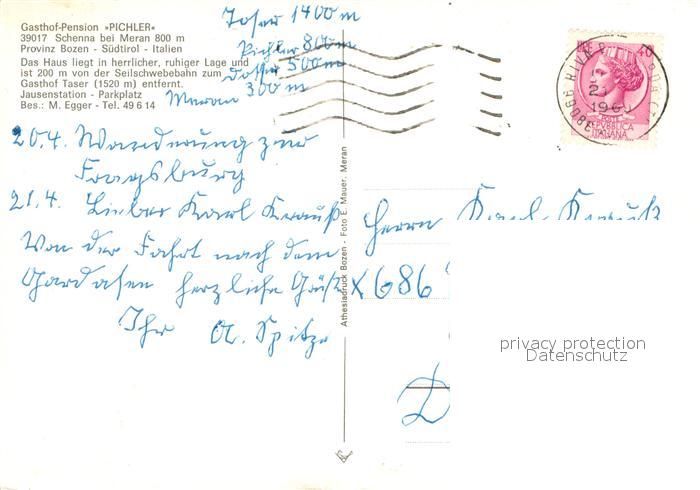 Gasthof-Pension »PICHLER«
39017 Schenna bei Meran 800 m
Provinz Bozen - Südtirol - Italien
Das Haus liegt in herrlicher, ruhiger Lage und
ist 200 m von der Seilschwebebahn zum
Gasthof Taser (1520 m) entfernt.
Jausenstation - Parkplatz
Bes.: M. Egger - Tel. 49 6 14
Taser 1400 m
Pichler 800 m
500 m
Meran 300 m
20.4. Wanderung zur
Fragsburg
21.4. Lieber Karl Krauß
Von der Fahrt nach dem
Gardasee herzliche Grüße
Ihr A. Spitz
Athesiadruck Bozen - Foto E. Mauer, Meran
40
POSTE
REPVBBLICA
ITALIANA
38066 RIVA
Herrn Karl Krauß
X 686
D
privacy protection
Datenschutz